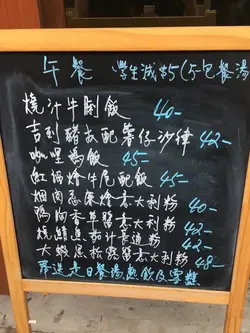 午餐 學生減$5 (不包餐湯
燒汁牛脷飯 40-
吉列豬扒配薯仔沙律 42-
咖哩鴨飯 45-
紅酒燴牛尾配飯 45-
烟肉忌廉燴意大利粉 40-
鴨肉香草醬意大利粉 42-
燒鯖魚茄汁長通粉 42-
大蝦黑松露醬意大利粉 48-
跟送是日餐湯熱飲及雪糕